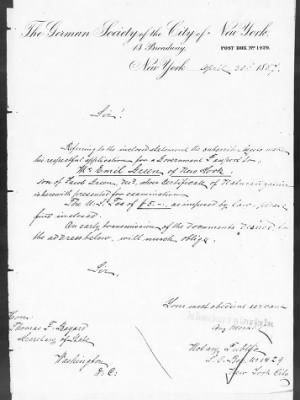 The German Society of the City of New York.
13 Broadway.
POST BOX No 1929.
New York April 1887.
Sir!
Referring to the inclosed statement the subscriber begs make
his respectful application for a Government Passport for
Mr Emil of New York
son of dec'd, whose Certificate of Naturalization
is herewith presented for examination.
The U.S. Fee of $5.- as imposed by law, please
find inclosed.
An early transmission of the documents desired to
the address below, will much oblige.
Sir,
Your most obedient servant
Hon.
Thomas F. Bayard
Secretary of State
Washington
D. C.
Notary Public
P.O. Box 1929
New York City